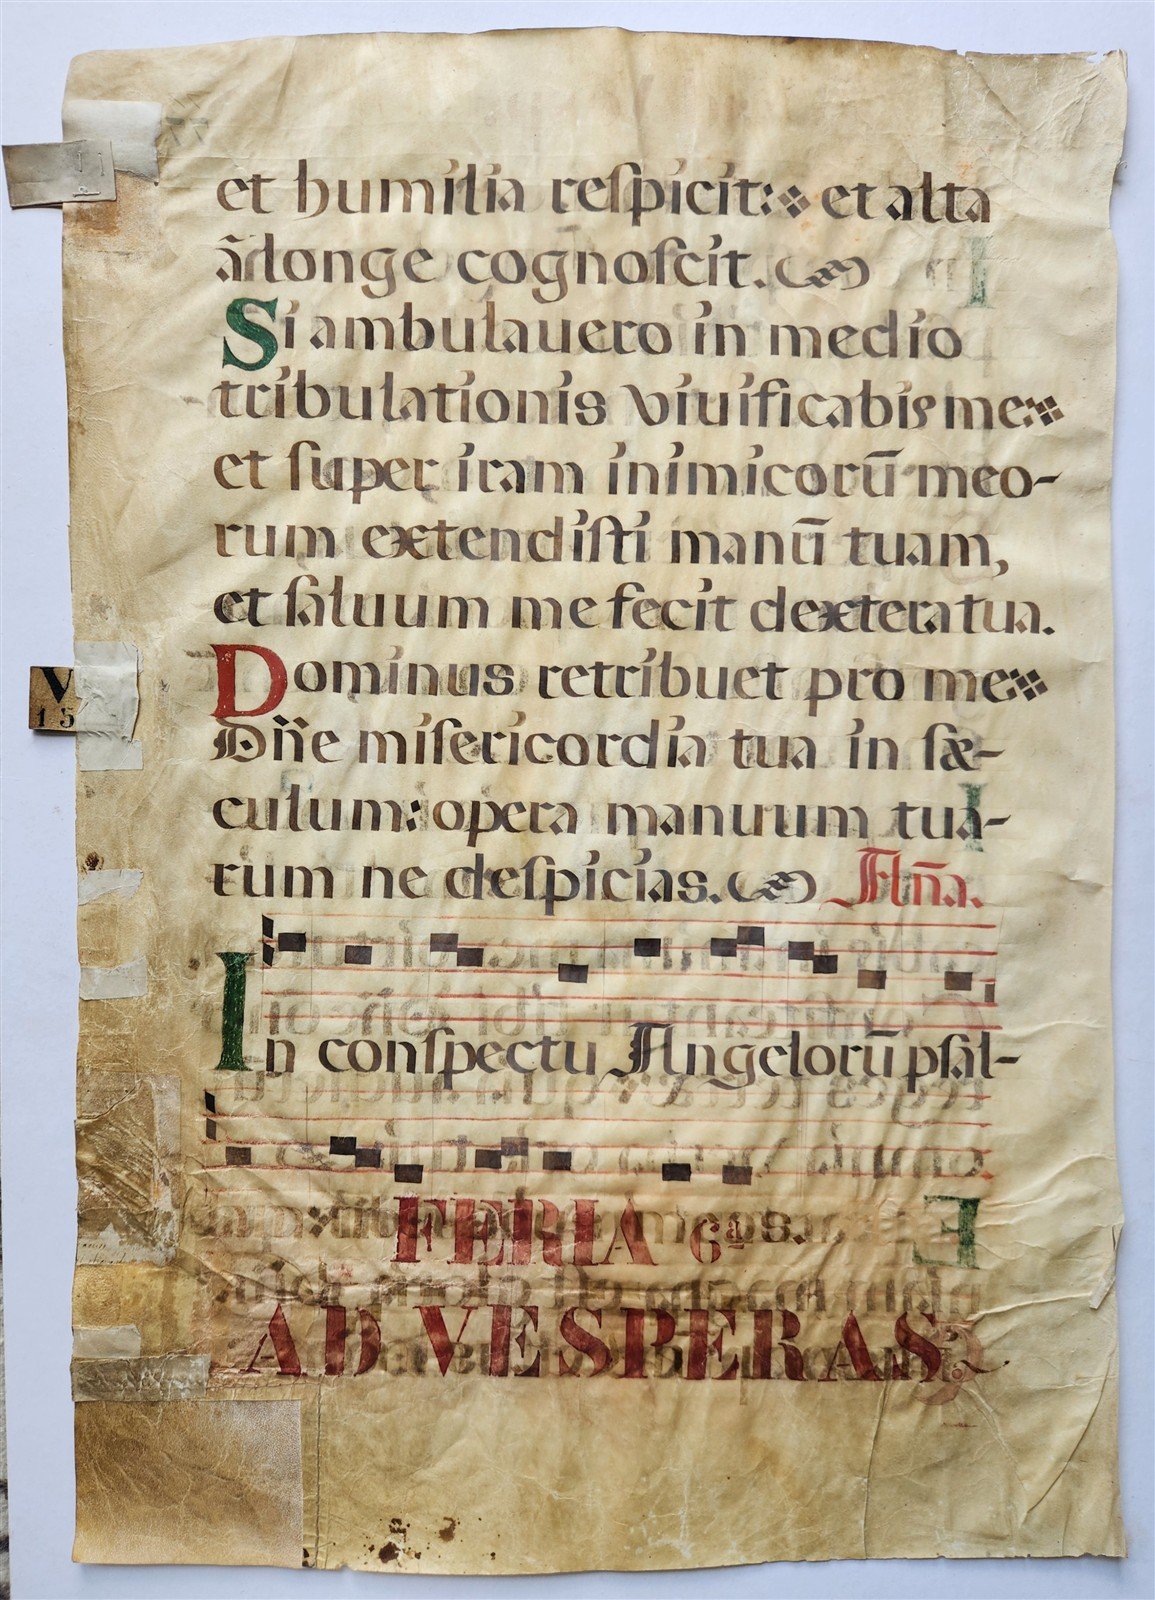 et humilia reſpicit: et alta
ã longe cognoſcit.
Si ambulauero in medio
tribulationis viuificabis me:
et ſuper iram inimicorũ meo-
rum extendiſti manũ tuam,
et ſaluum me fecit dextera tua.
Dominus retribuet pro me:
Dñe miſericordia tua in ſæ-
culum: opera manuum tua-
rum ne deſpicias. Añã.
In conſpectu Angelorũ pſal-
FERIA 6ª
AD VESPERAS.
V
15